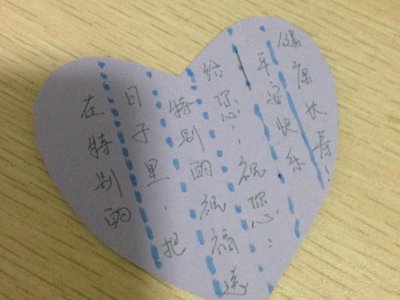 在特别的
日子里.把
特别的祝福送
给您:祝您:
平安快乐
健康长寿!